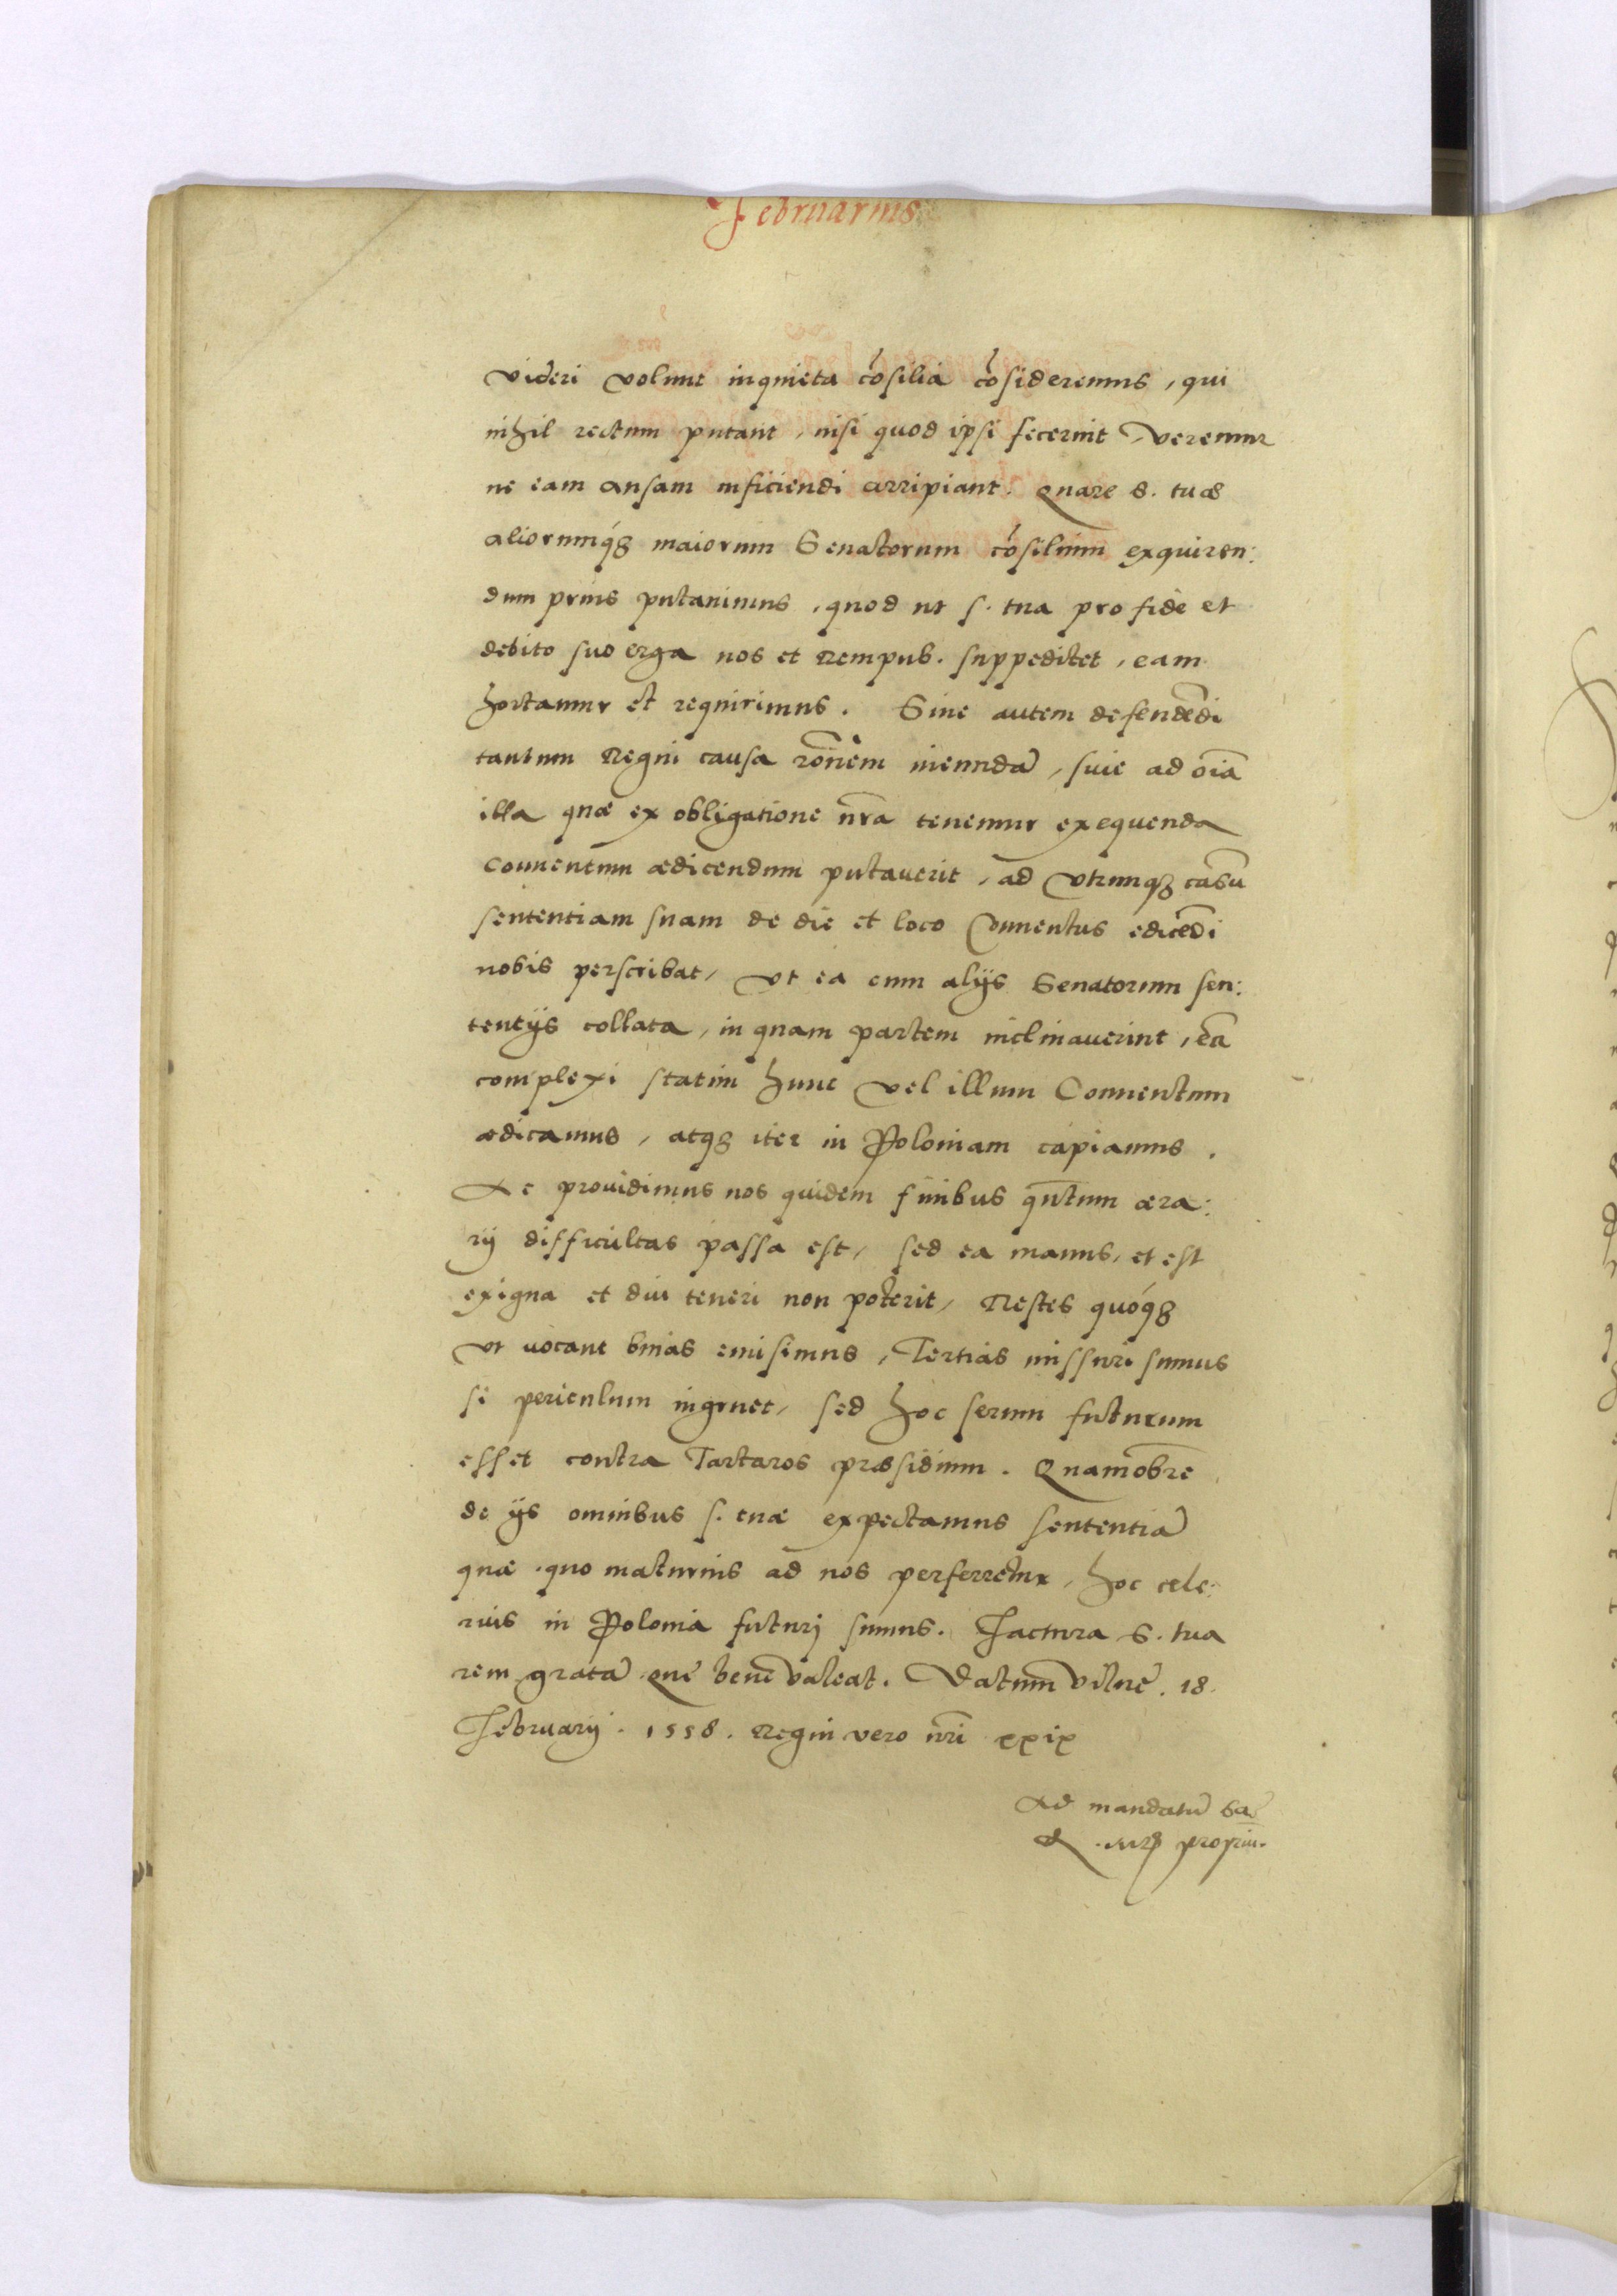 Februarius
videri volunt inquieta cōsilia cōsideremus, qui
nihil rectum putant, nisi quod ipsi fecerint Veremur
ne eam ansam inficiendi arripiant. Quare S. tuæ
aliorumq́ꝫ maiorum Senatorum cōsilium exquiren:
dum prius putauimus, quod ut s. tua pro fide et
debito suo erga nos et Rempub. suppeditet, eam
hortamur et requirimus. Siue autem defendēdi
tantum Regni causa rōnem ineundā, siue ad oīa
illa quæ ex obligatione nr̄a tenemur exequenda
Conuentum ædicendum putauerit, ad vtrumqꝫ casū
sententiam suam de die et loco Conuentus edicēdi
nobis perscribat, vt ea cum alijs Senatorum sen:
tentijs collata, in quam partem inclinauerint, eā
complexi statim hunc vel illum Conuentum
ædicamus, atqꝫ iter in Poloniam capiamus.
Ac prouidimus nos quidem finibus qn̄tum æra:
rij difficultas passa est, sed ea manus, et est
exigua et diu teneri non poterit, Restes quóqꝫ
vt uocant binas emisimus, Tertias missuri sumus
si periculum ingruet, sed hoc serum futurum
esset contra Tartaros præsidium. Quamobr̄e
de ijs omnibus s. tuæ expectamus sententiā
quæ quo maturius ad nos perferretur, hoc cele:
rius in Polonia futuri sumus. Factura S. tua
rem gratā quē benē valeat. Datum Vilnē. 18.
Februarij. 1558. Regni vero nr̄i xxix
Ad mandatū Sa͠e
R. Mtis propriu.